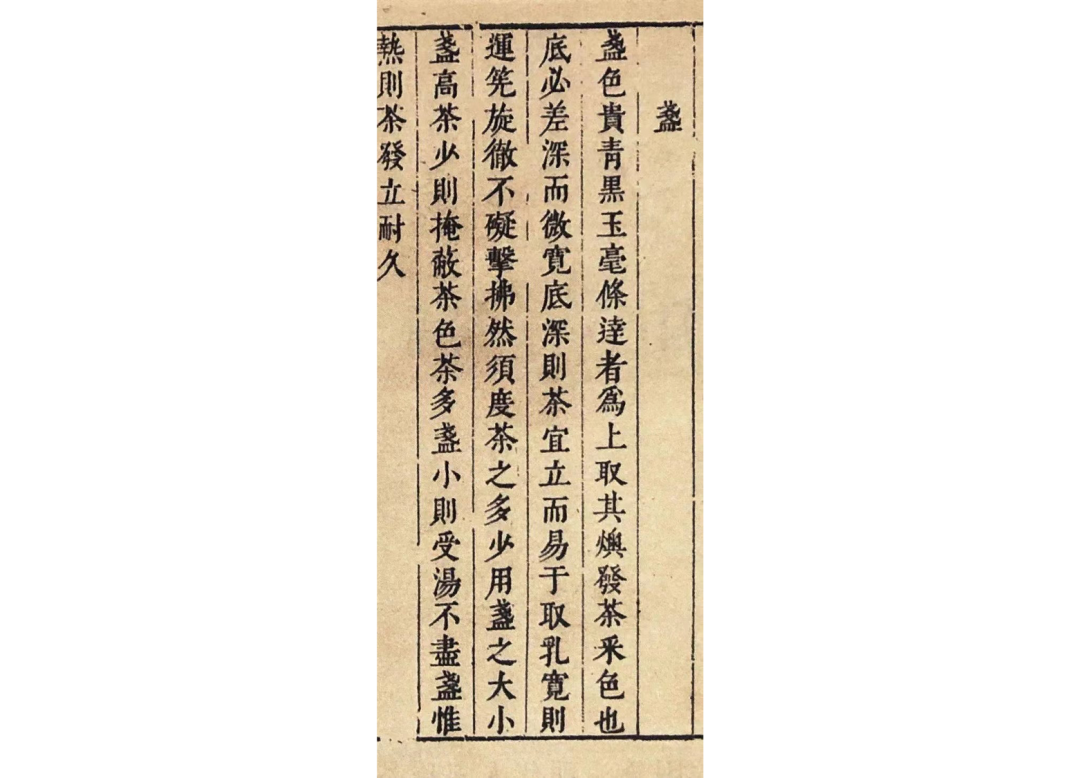 盞
盞色貴青黑玉毫條達者爲上取其燠發茶采色也
底必差深而微寛底深則茶宜立而易于取乳寛則
運筅旋徹不礙擊拂然須度茶之多少用盞之大小
盞高茶少則掩蔽茶色茶多盞小則受湯不盡盞惟
熱則茶發立耐久